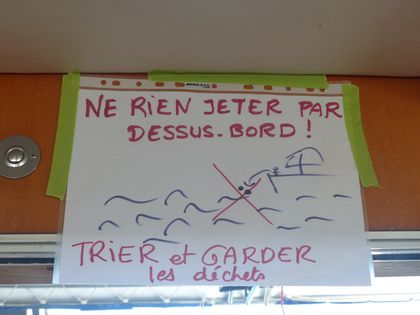 NE RIEN JETER PAR
DESSUS-BORD !
TRIER et GARDER
les déchets